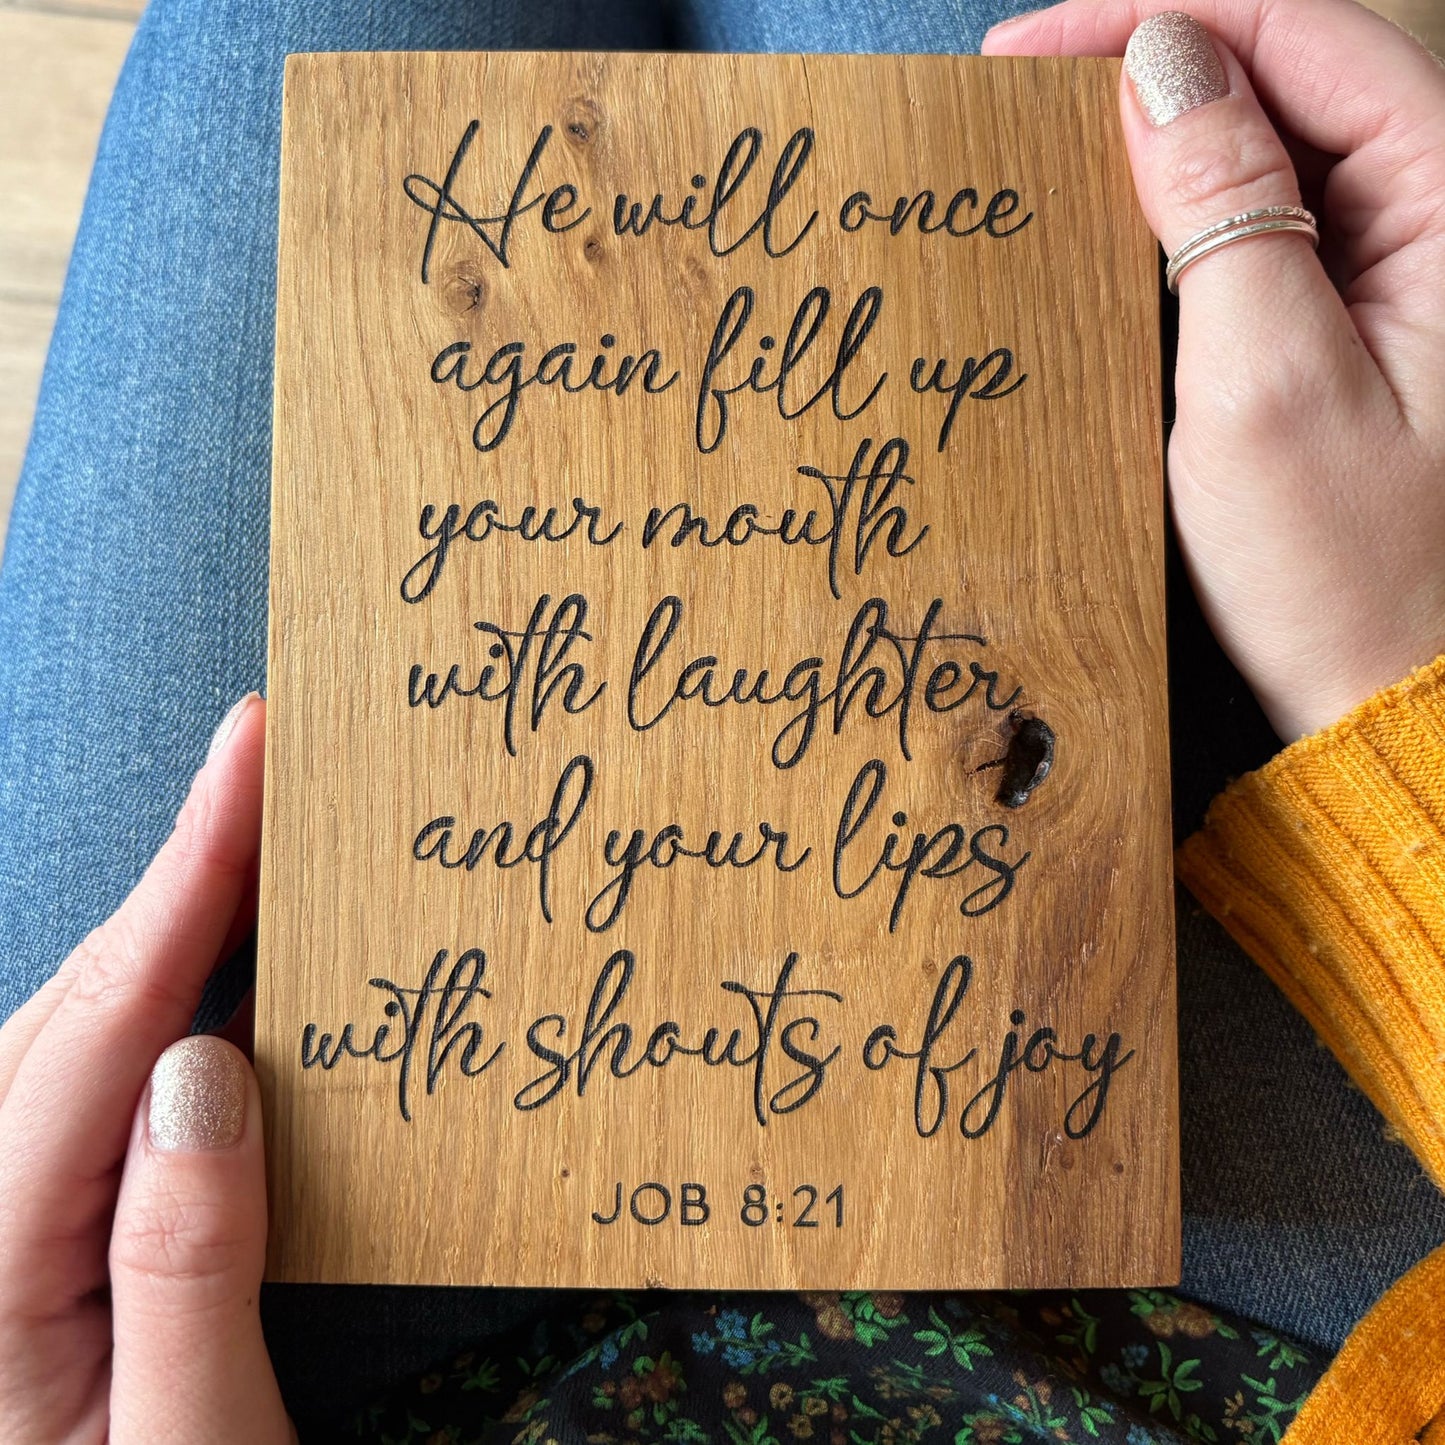 He will once
again fill up
your mouth
with laughter
and your lips
with shouts of joy
JOB 8:21